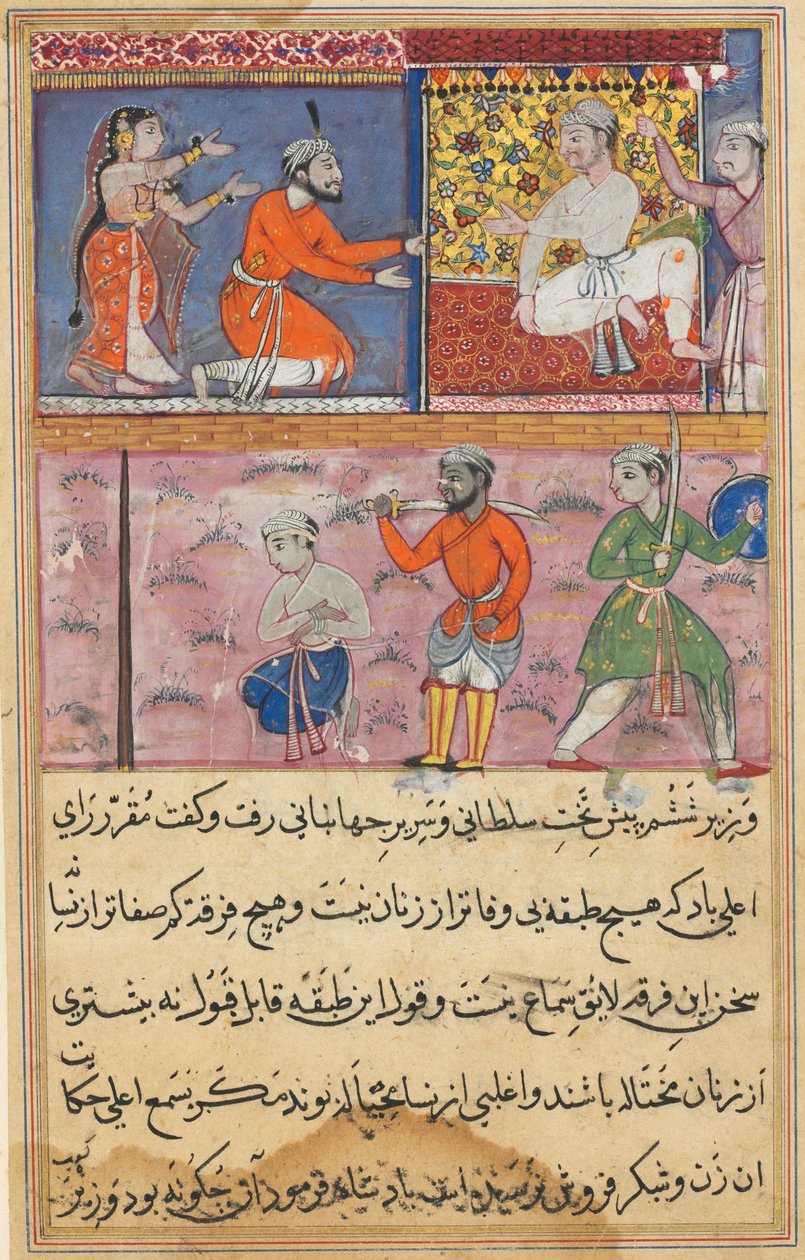 وَزیر ششُم پیشِ تَختِ سلطانی وَسَریرِ جهانبانی رفت و کفت مُقَرّر رَای
اعلی باد که هیچ طبقه بی وفاتر از زنان نیَستَ و هیچ فِرقهٔ کم صفاتر از نسِا نه
سخن این فرقه لایق سَماع نیستَ و قول این طَبَقَه قابل قَبوُل نه بیشتری
از زنان مُحتَاله باشند و اغلبی از نسا مُحیَاله بوند مَکر بَسمع اعلی حکایت
ان زَن و شکر فروش نرسیده است بادشاه فرمود آن جَکونَه بود وَزیر کفت